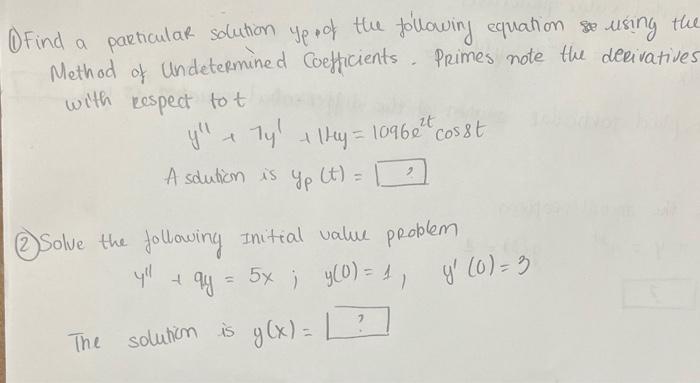 ① Find a particular solution yp, of the following equation using the
Method of Undetermined Coefficients. Primes note the derivatives
with respect to t
y'' + 7y' + 14y = 1096e^2t cos8t
A solution is yp (t) = [ ? ]
② Solve the following Initial value problem
y'' + 9y = 5x ; y(0) = 1, y'(0) = 3
The solution is y(x) = [ ? ]